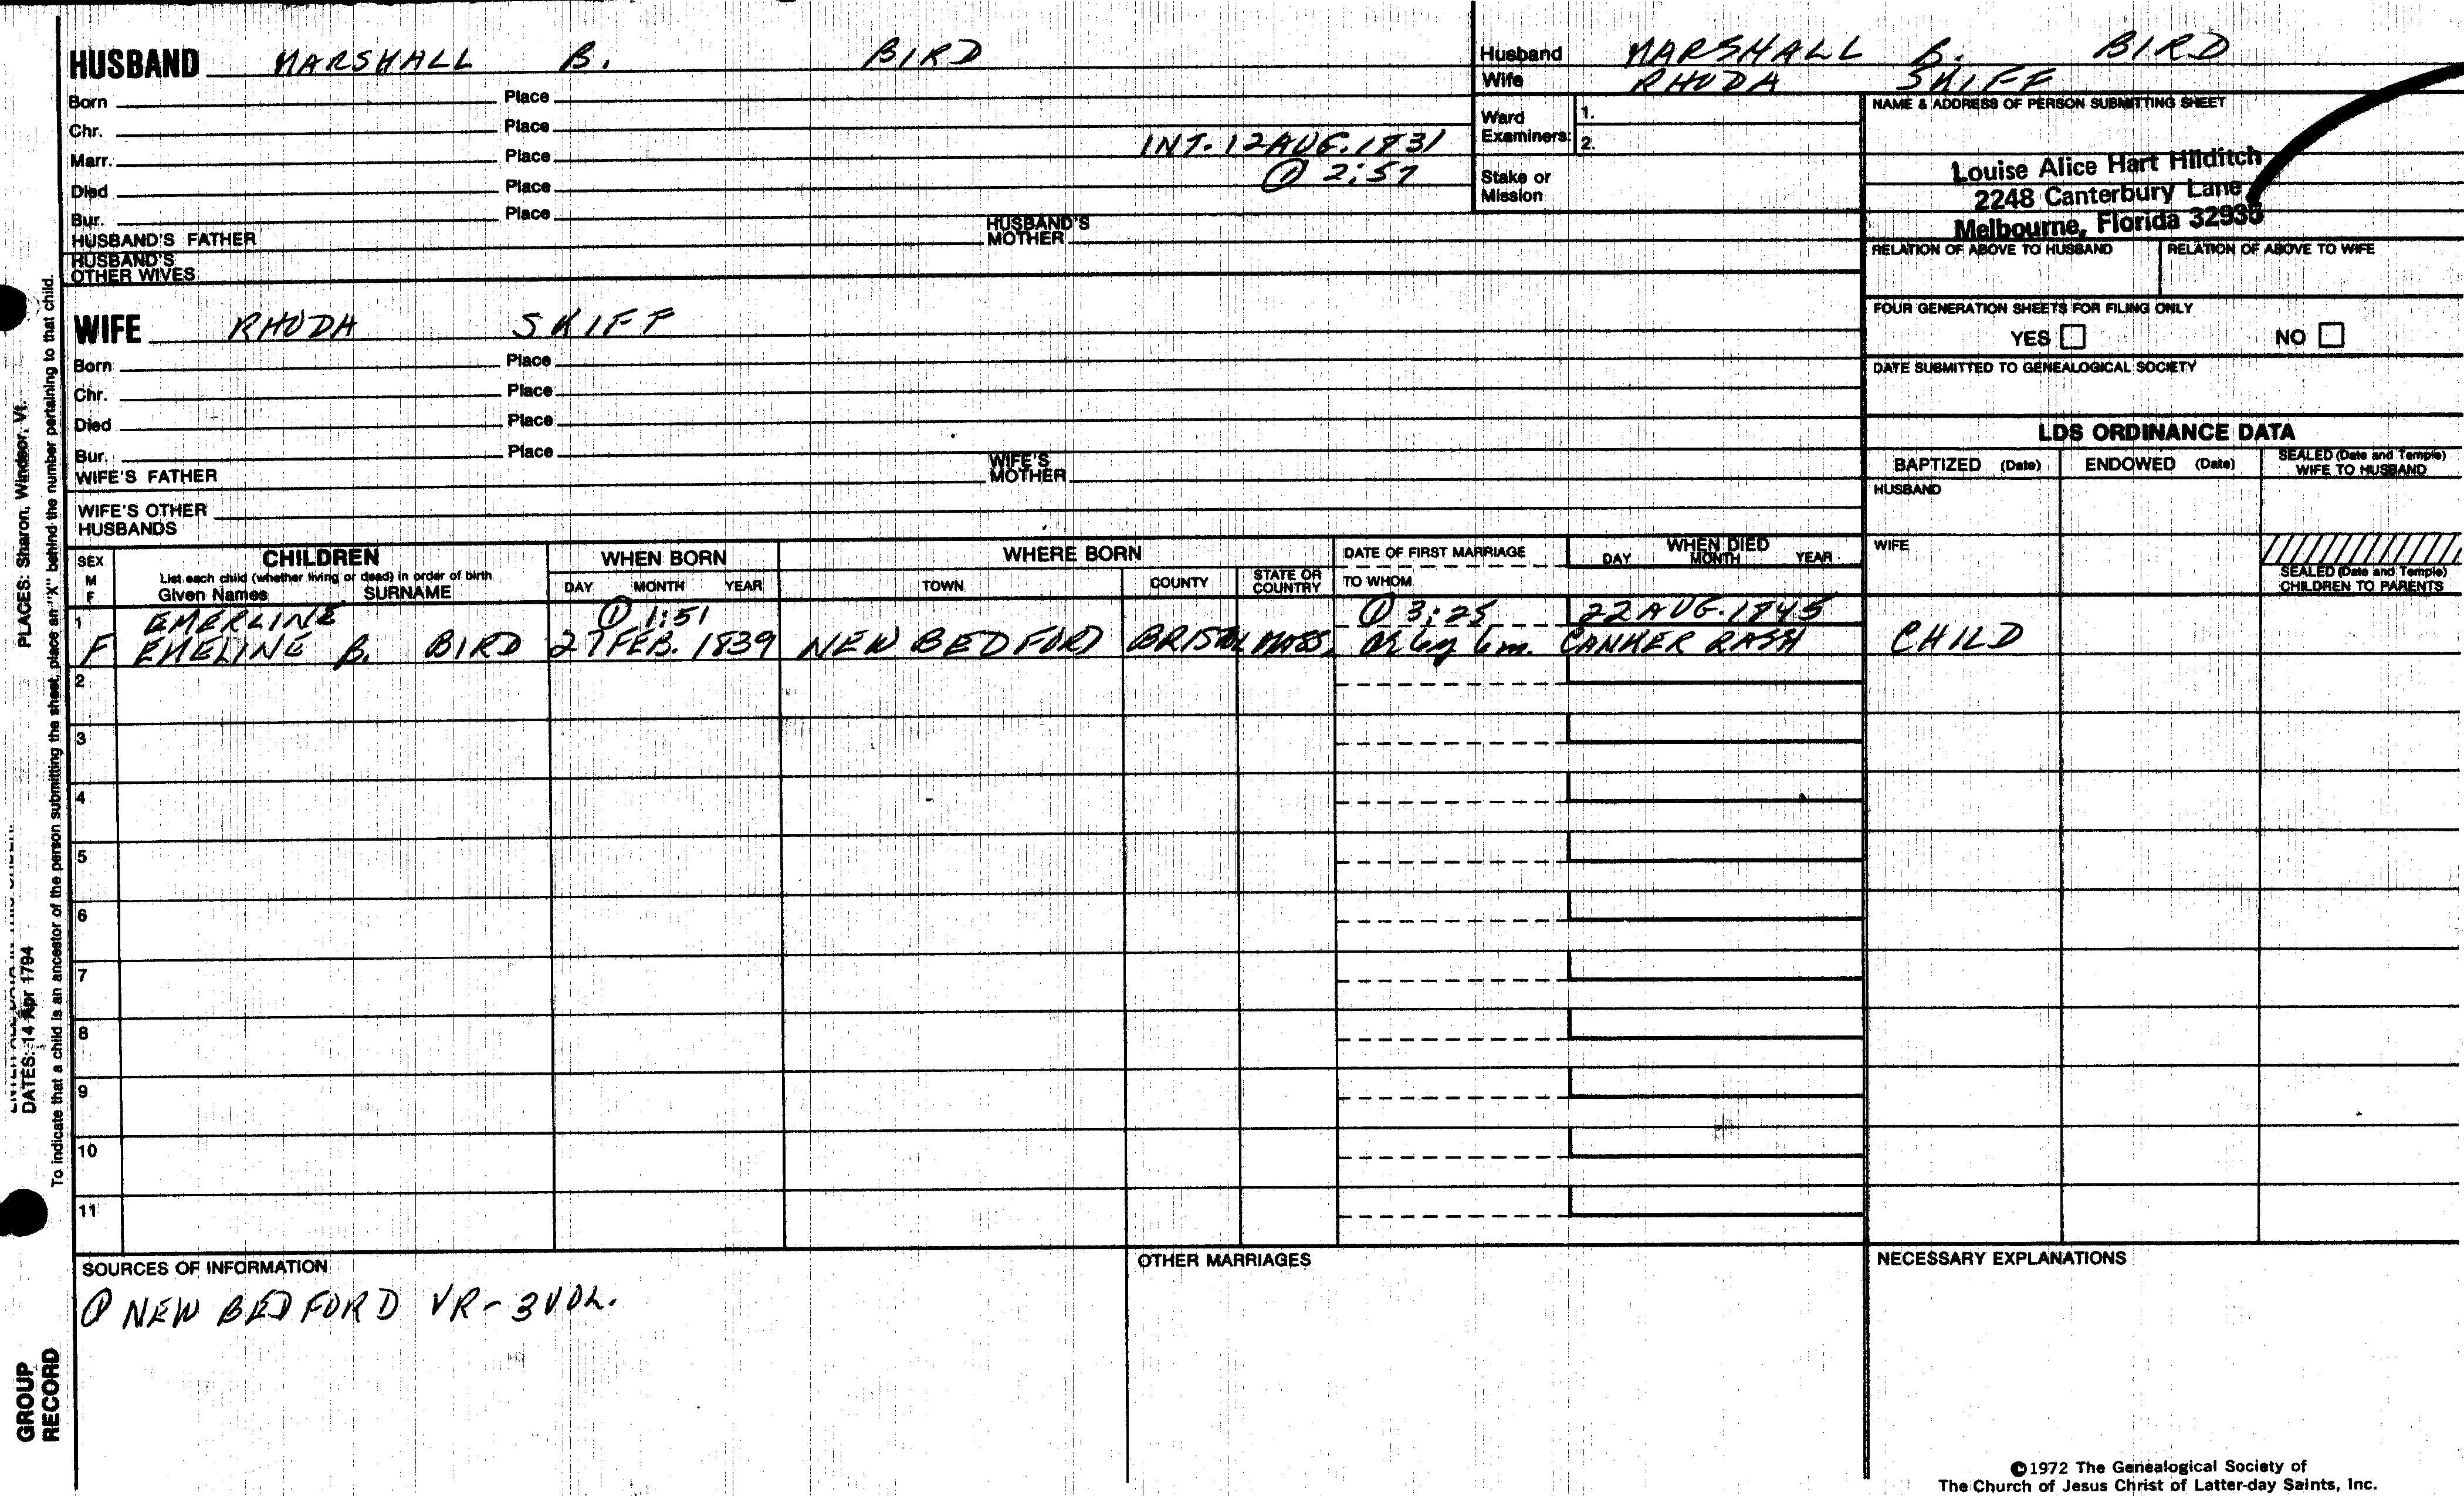 HUSBAND MARSHALL B. BIRD
Born Place
Chr. Place
Marr. Place INT. 12 AUG. 1831
Died Place ① 2:57
Bur. Place
HUSBAND'S FATHER HUSBAND'S MOTHER
HUSBAND'S OTHER WIVES
WIFE RHODA SKIFF
Born Place
Chr. Place
Died Place
Bur. Place
WIFE'S FATHER WIFE'S MOTHER
WIFE'S OTHER HUSBANDS
Husband MARSHALL B. BIRD
Wife RHODA SKIFF
Ward Examiners: 1.
2.
Stake or Mission
NAME & ADDRESS OF PERSON SUBMITTING SHEET
Louise Alice Hart Hilditch
2248 Canterbury Lane
Melbourne, Florida 32935
RELATION OF ABOVE TO HUSBAND RELATION OF ABOVE TO WIFE
FOUR GENERATION SHEETS FOR FILING ONLY
YES NO
DATE SUBMITTED TO GENEALOGICAL SOCIETY
LDS ORDINANCE DATA
BAPTIZED (Date) ENDOWED (Date) SEALED (Date and Temple) WIFE TO HUSBAND
HUSBAND
WIFE
SEALED (Date and Temple) CHILDREN TO PARENTS
SEX M F
CHILDREN
List each child (whether living or dead) in order of birth
Given Names SURNAME
WHEN BORN
DAY MONTH YEAR
WHERE BORN
TOWN COUNTY STATE OR COUNTRY
DATE OF FIRST MARRIAGE
TO WHOM
WHEN DIED
DAY MONTH YEAR
1 EMERLINE ① 1:51 ① 3:25 22 AUG. 1845
F EMELINE B. BIRD 27 FEB. 1839 NEW BEDFORD BRISTOL MASS. 6y 6m. CANKER RASH CHILD
2
3
4
5
6
7
8
9
10
11
SOURCES OF INFORMATION
① NEW BEDFORD VR - 3 VOL.
OTHER MARRIAGES
NECESSARY EXPLANATIONS
©1972 The Genealogical Society of
The Church of Jesus Christ of Latter-day Saints, Inc.
PLACES: Sharon, Windsor, Vt.
DATES: 14 Apr 1794
To indicate that a child is an ancestor of the person submitting the sheet, place an "X" behind the number pertaining to that child.
GROUP
RECORD